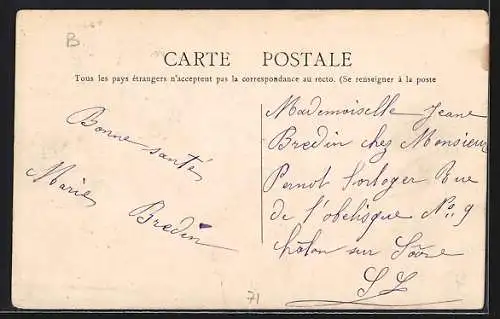 B
CARTE POSTALE
Tous les pays étrangers n'acceptent pas la correspondance au recto. (Se renseigner à la poste
Bonne santé
Marie
Bredin
Mademoiselle Jeane
Bredin chez Monsieur
Pernot horloger Rue
de l'obélisque No 9
châlon sur Saône
S L
71